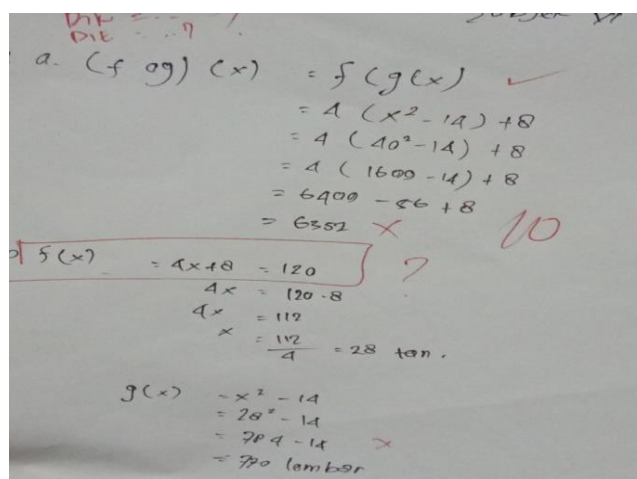 Dik = ...
Dit = ...?
a. (f og) (x) = f (g(x)
= 4 (x² - 14) + 8
= 4 (40² - 14) + 8
= 4 (1600 - 14) + 8
= 6400 - 56 + 8
= 6352
10
f(x) = 4x+8 = 120
?
4x = 120 - 8
4x = 112
x = 112/4 = 28 ton.
g(x) = x² - 14
= 28² - 14
= 784 - 14
= 770 lembar